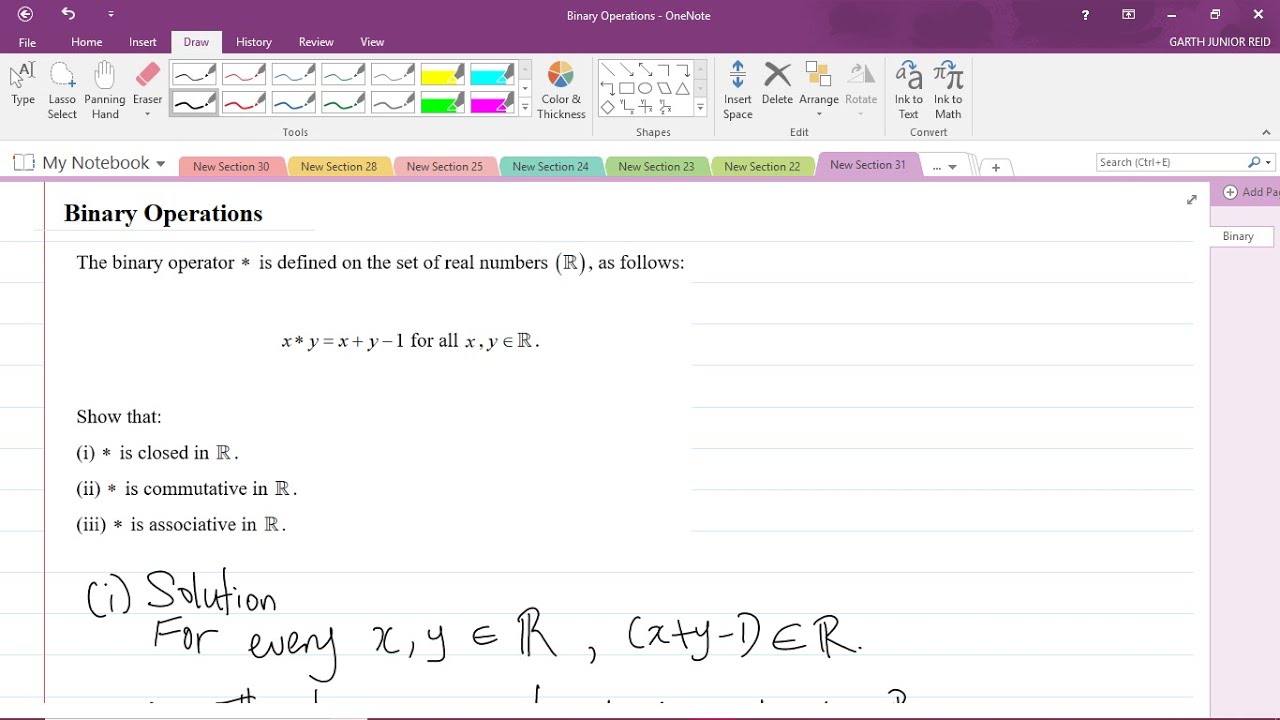 Binary Operations - OneNote
?
GARTH JUNIOR REID
File Home Insert Draw History Review View
Type
Lasso Select
Panning Hand
Eraser
Color & Thickness
Insert Space
Delete
Arrange
Rotate
Ink to Text
Ink to Math
Tools
Shapes
Edit
Convert
My Notebook
New Section 30
New Section 28
New Section 25
New Section 24
New Section 23
New Section 22
New Section 31
...
+
Search (Ctrl+E)
Add Pa
Binary
Binary Operations
The binary operator * is defined on the set of real numbers (ℝ), as follows:
x * y = x + y − 1 for all x , y ∈ ℝ.
Show that:
(i) * is closed in ℝ.
(ii) * is commutative in ℝ.
(iii) * is associative in ℝ.
(i) Solution
For every x, y ∈ ℝ, (x+y-1) ∈ ℝ.